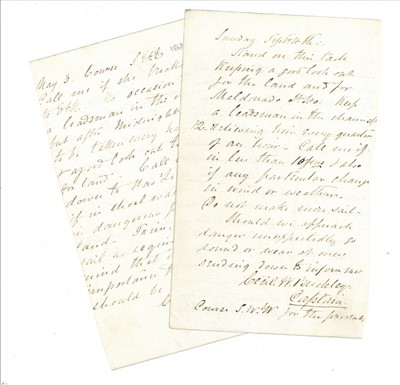 May 3. Course S
Call me if she breaks
to occasion
a leadsman in the
but after midnight
to be taken every
a good look out
for land. Call
down to
if in shoal wa
in dangerous
land.
sail as requi
mind that
importance
should be
Sunday Septr 4th.
Stand on this tack
keeping a good look out
for the land and for
Maldonado Pt. Keep
a leadsman in the chains
relieving him every quarter
of an hour - Call me if
in less than 10 fms & also
if any particular change
in wind or weather.
Do not make more sail -
Should we approach
danger unexpectedly go
round or wear at once
sending down to inform me
Cecil W. Buckley
Captain
for the present
Course S.W.W